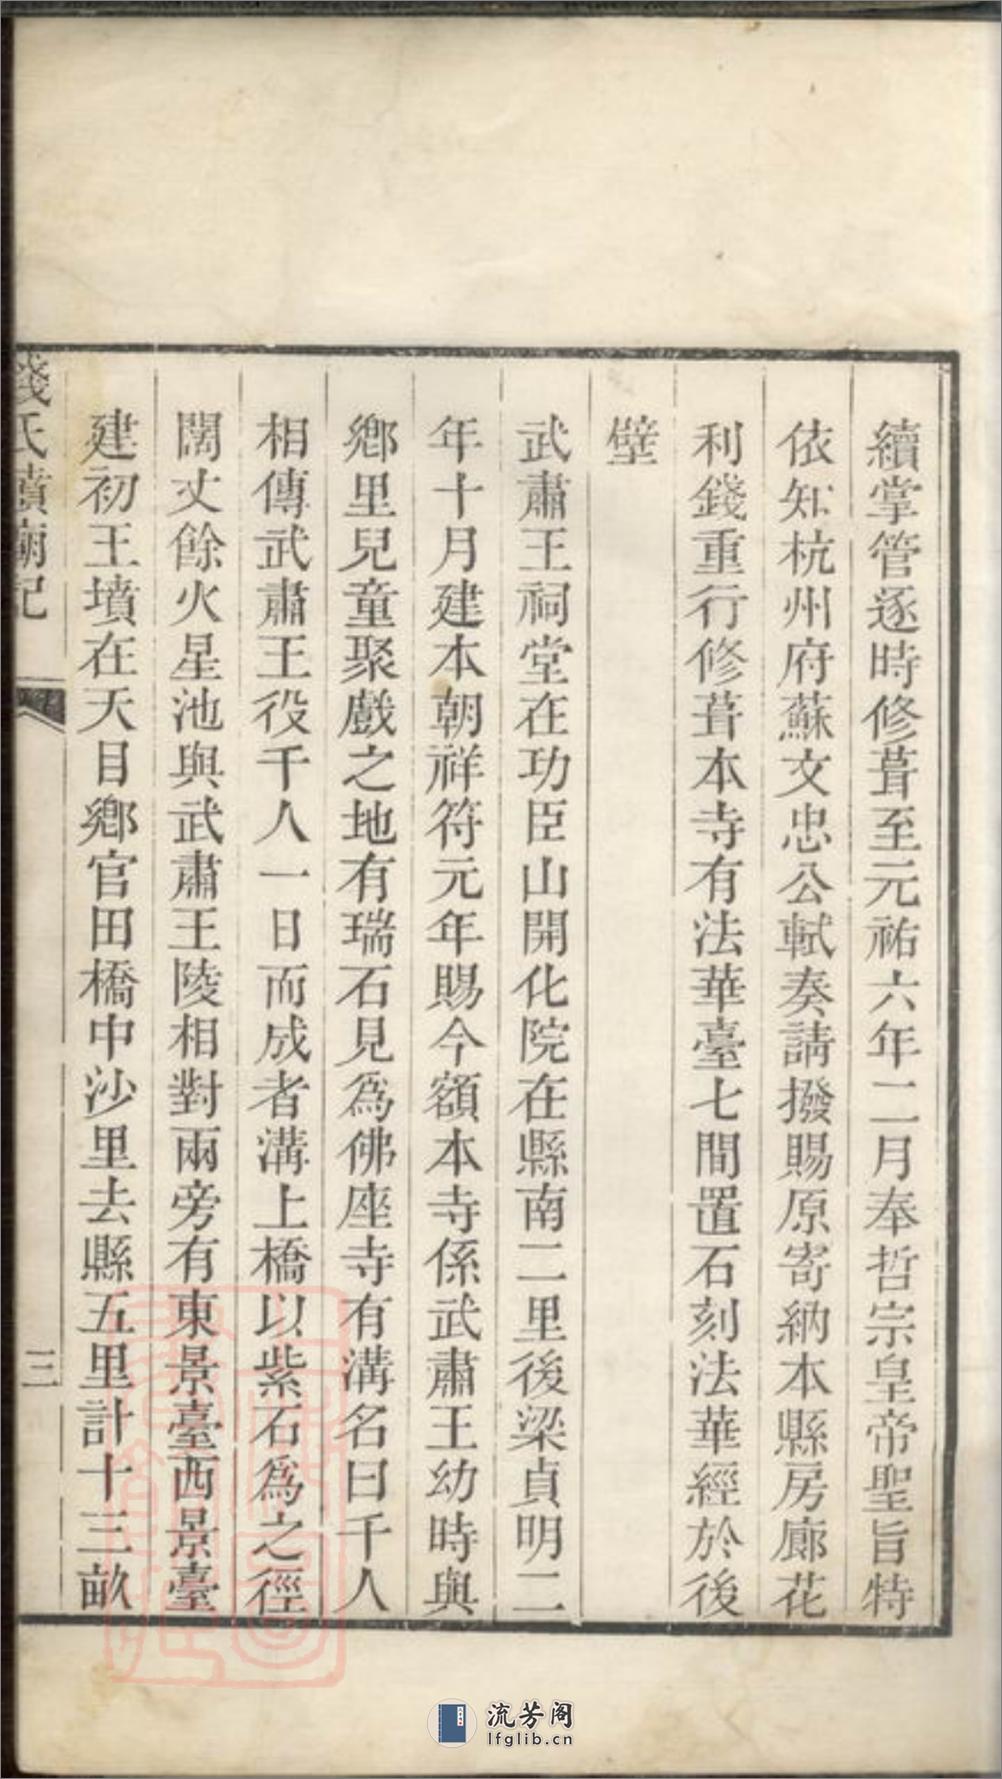 續掌管逐時修葺至元祐六年二月奉哲宗皇帝聖旨特
依知杭州府蘇文忠公軾奏請撥賜原寄納本縣房廊花
利錢重行修葺本寺有法華臺七間置石刻法華經於後
壁
武肅王祠堂在功臣山開化院在縣南二里後梁貞明二
年十月建本朝祥符元年賜今額本寺係武肅王幼時與
鄉里兒童聚戲之地有瑞石見為佛座寺有溝名曰千人
相傳武肅王役千人一日而成者溝上橋以紫石為之徑
闊丈餘火星池與武肅王陵相對兩旁有東景臺西景臺
建初王墳在天目鄉官田橋中沙里去縣五里計十三畝
錢氏墳廟記
三
流芳阁
lfglib.cn